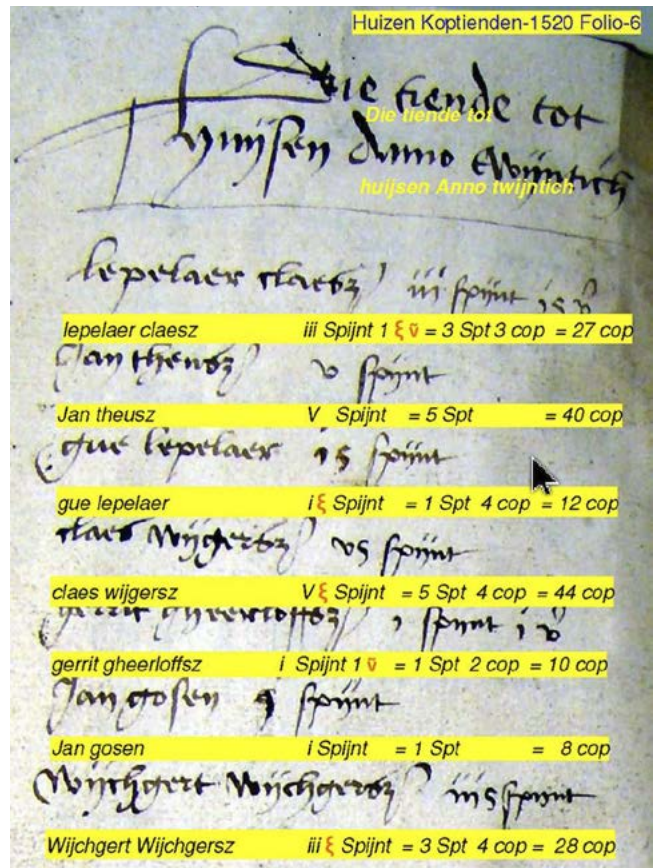 Huizen Koptienden-1520 Folio-6
Die tiende tot
Die tiende tot
huijsen Anno twijntich
huijsen Anno twijntich
lepelaer claesz iii spijnt
lepelaer claesz iii Spijnt 1 ξ ṽ = 3 Spt 3 cop = 27 cop
Jan theusz v spijnt
Jan theusz V Spijnt = 5 Spt = 40 cop
gue lepelaer i ξ spijnt
gue lepelaer i ξ Spijnt = 1 Spt 4 cop = 12 cop
claes wijgersz v ξ spijnt
claes wijgersz V ξ Spijnt = 5 Spt 4 cop = 44 cop
gerrit gheerloffsz i spijnt 1 ṽ
gerrit gheerloffsz i Spijnt 1 ṽ = 1 Spt 2 cop = 10 cop
Jan gosen spijnt
Jan gosen i Spijnt = 1 Spt = 8 cop
Wijchgert Wijchgersz iii ξ spijnt
Wijchgert Wijchgersz iii ξ Spijnt = 3 Spt 4 cop = 28 cop